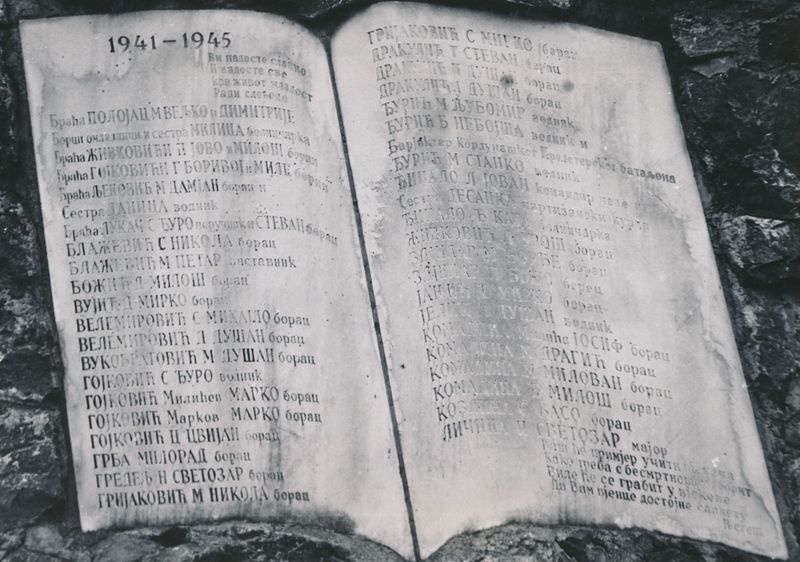 1941-1945
Ви падосте славно
И дадосте све
Крв живот младост
Ради слободе
Браћа ПОЛОЈАЦ М ВЕЉКО и ДИМИТРИЈЕ
Борци омладинци и сестра МИЛИЦА болничарка
Браћа ЖИВКОВИЋИ Н ЈОВО и МИЛОШ борац
Браћа ГОЈКОВИЋИ Г БОРИВОЈ и МИЛЕ борци
Браћа ЉЕПОВИЋ М ДАМЈАН борац и
Сестра ДАНИЦА водник
Браћа ЛУКАЧ С ЂУРО поручник и СТЕВАН борац
БЛАЖЕВИЋ С НИКОЛА борац
БЛАЖЕВИЋ М ПЕТАР заставник
БОЖИЋ Д МИЛОШ борац
ВУЈИЋ Д МИРКО борац
ВЕЛЕМИРОВИЋ С МИХАЈЛО борац
ВЕЛЕМИРОВИЋ Д ДУШАН борац
ВУКОБРАТОВИЋ М ДУШАН борац
ГОЈКОВИЋ С ЂУРО водник
ГОЈКОВИЋ Милићев МАРКО борац
ГОЈКОВИЋ Марков МАРКО борац
ГОЈКОВИЋ Ц ЦВИЈАН борац
ГРБА МИЛОРАД борац
ГРЕДЕЉ Н СВЕТОЗАР борац
ГРИЈАКОВИЋ М НИКОЛА борац
ГРИЈАКОВИЋ С МИРКО борац
ДРАКУЛИЋ Т СТЕВАН борац
ДРАКУЛИЋ Н ДУШАН борац
ДРАКУЛИЋ Ј ДУШАН борац
ЂУРИЋ М ЉУБОМИР водник
ЂУРИЋ Б НЕБОЈША водник и
Барјактар Кордунашког Пролетерског батаљона
ЂУРИЋ М СТАНКО водник
ЋИПАЛО Л ЈОВАН командир чете и
Сестра ДЕСАНКА партизански курир
болничарка
ЖИВКОВИЋ МИЛОШ борац
борац
борац
МИРКО борац
ДУШАН водник
ЈОСИФ борац
КОМАДИНА ДРАГИЋ борац
КОМАДИНА МИЛОВАН борац
КОМАДИНА МИЛОШ борац
ВАСО борац
ЛИЧИНА Н СВЕТОЗАР мајор
ће примјер учити
Како треба с бесмртношћу
ће се грабит у вјекове
Да Вам вјенце достојне
Његош